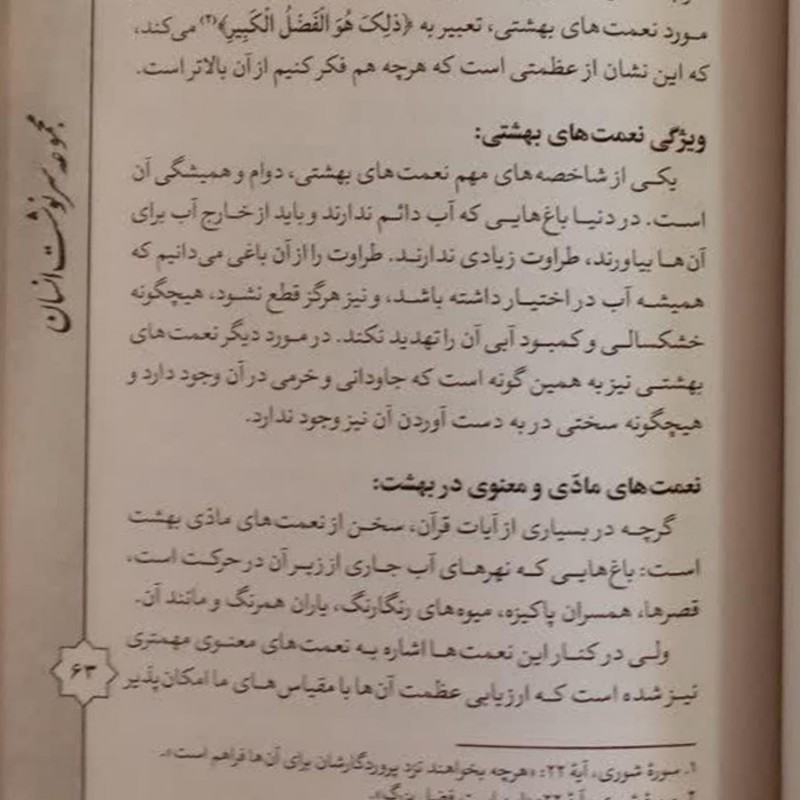 مورد نعمت‌های بهشتی، تعبیر به ﴿ذلِکَ هُوَ الْفَضْلُ الْکَبیرِ﴾(۲) می‌کند،
که این نشان از عظمتی است که هرچه هم فکر کنیم از آن بالاتر است.
ویژگی نعمت‌های بهشتی:
یکی از شاخصه‌های مهم نعمت‌های بهشتی، دوام و همیشگی آن
است. در دنیا باغ‌هایی که آب دائم ندارند و باید از خارج آب برای
آن‌ها بیاورند، طراوت زیادی ندارند. طراوت را از آن باغی می‌دانیم که
همیشه آب در اختیار داشته باشد، و نیز هرگز قطع نشود، هیچگونه
خشکسالی و کمبود آبی آن را تهدید نکند. در مورد دیگر نعمت‌های
بهشتی نیز به همین گونه است که جاودانی و خرمی در آن وجود دارد و
هیچگونه سختی در به دست آوردن آن نیز وجود ندارد.
نعمت‌های مادّی و معنوی در بهشت:
گرچه در بسیاری از آیات قرآن، سخن از نعمت‌های مادّی بهشت
است: باغ‌هایی که نهرهای آب جاری از زیر آن در حرکت است،
قصرها، همسران پاکیزه، میوه‌های رنگارنگ، یاران همرنگ و مانند آن.
ولی در کنار این نعمت‌ها اشاره به نعمت‌های معنوی مهمتری
نیز شده است که ارزیابی عظمت آن‌ها با مقیاس‌های ما امکان‌پذیر
۱. سورهٔ شوری، آیهٔ ۲۲: «هرچه بخواهند نزد پروردگارشان برای آن‌ها فراهم است».
مجموعه سرنوشت انسان
۶۳